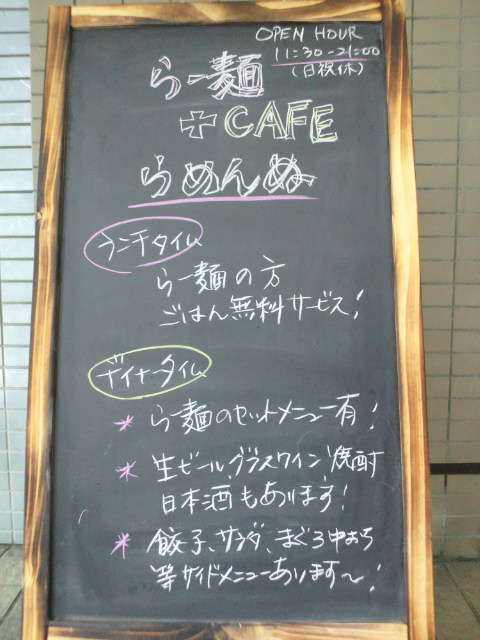 OPEN HOUR
11:30-21:00
(日祝休)
らー麺
+ CAFE
らめんぬ
ランチタイム
らー麺の方
ごはん無料サービス!
ディナータイム
* らー麺のセットメニュー有!
* 生ビール、グラスワイン、焼酎
日本酒もあります!
* 餃子、サラダ、まぐろ中おち
等サイドメニューあります~!